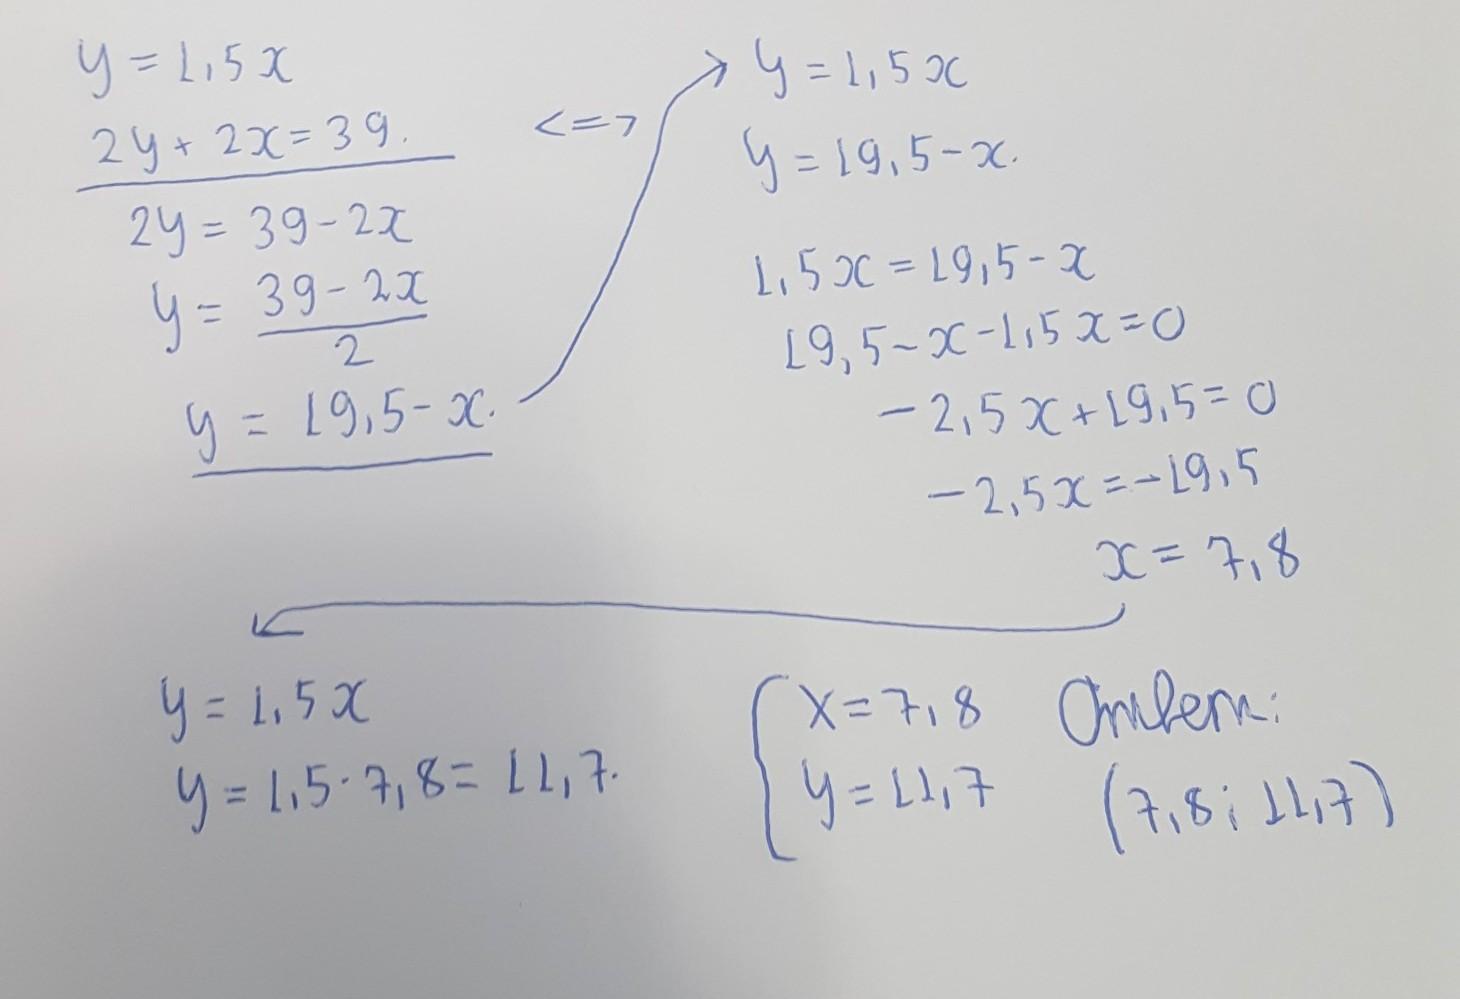 y = 1,5x
2y + 2x = 39.
2y = 39 - 2x
y = (39 - 2x)/2
y = 19,5 - x.
<=>
y = 1,5x
y = 19,5 - x.
1,5x = 19,5 - x
19,5 - x - 1,5x = 0
- 2,5x + 19,5 = 0
- 2,5x = - 19,5
x = 7,8
y = 1,5x
y = 1,5 · 7,8 = 11,7.
x = 7,8
y = 11,7
Ответ:
(7,8; 11,7)